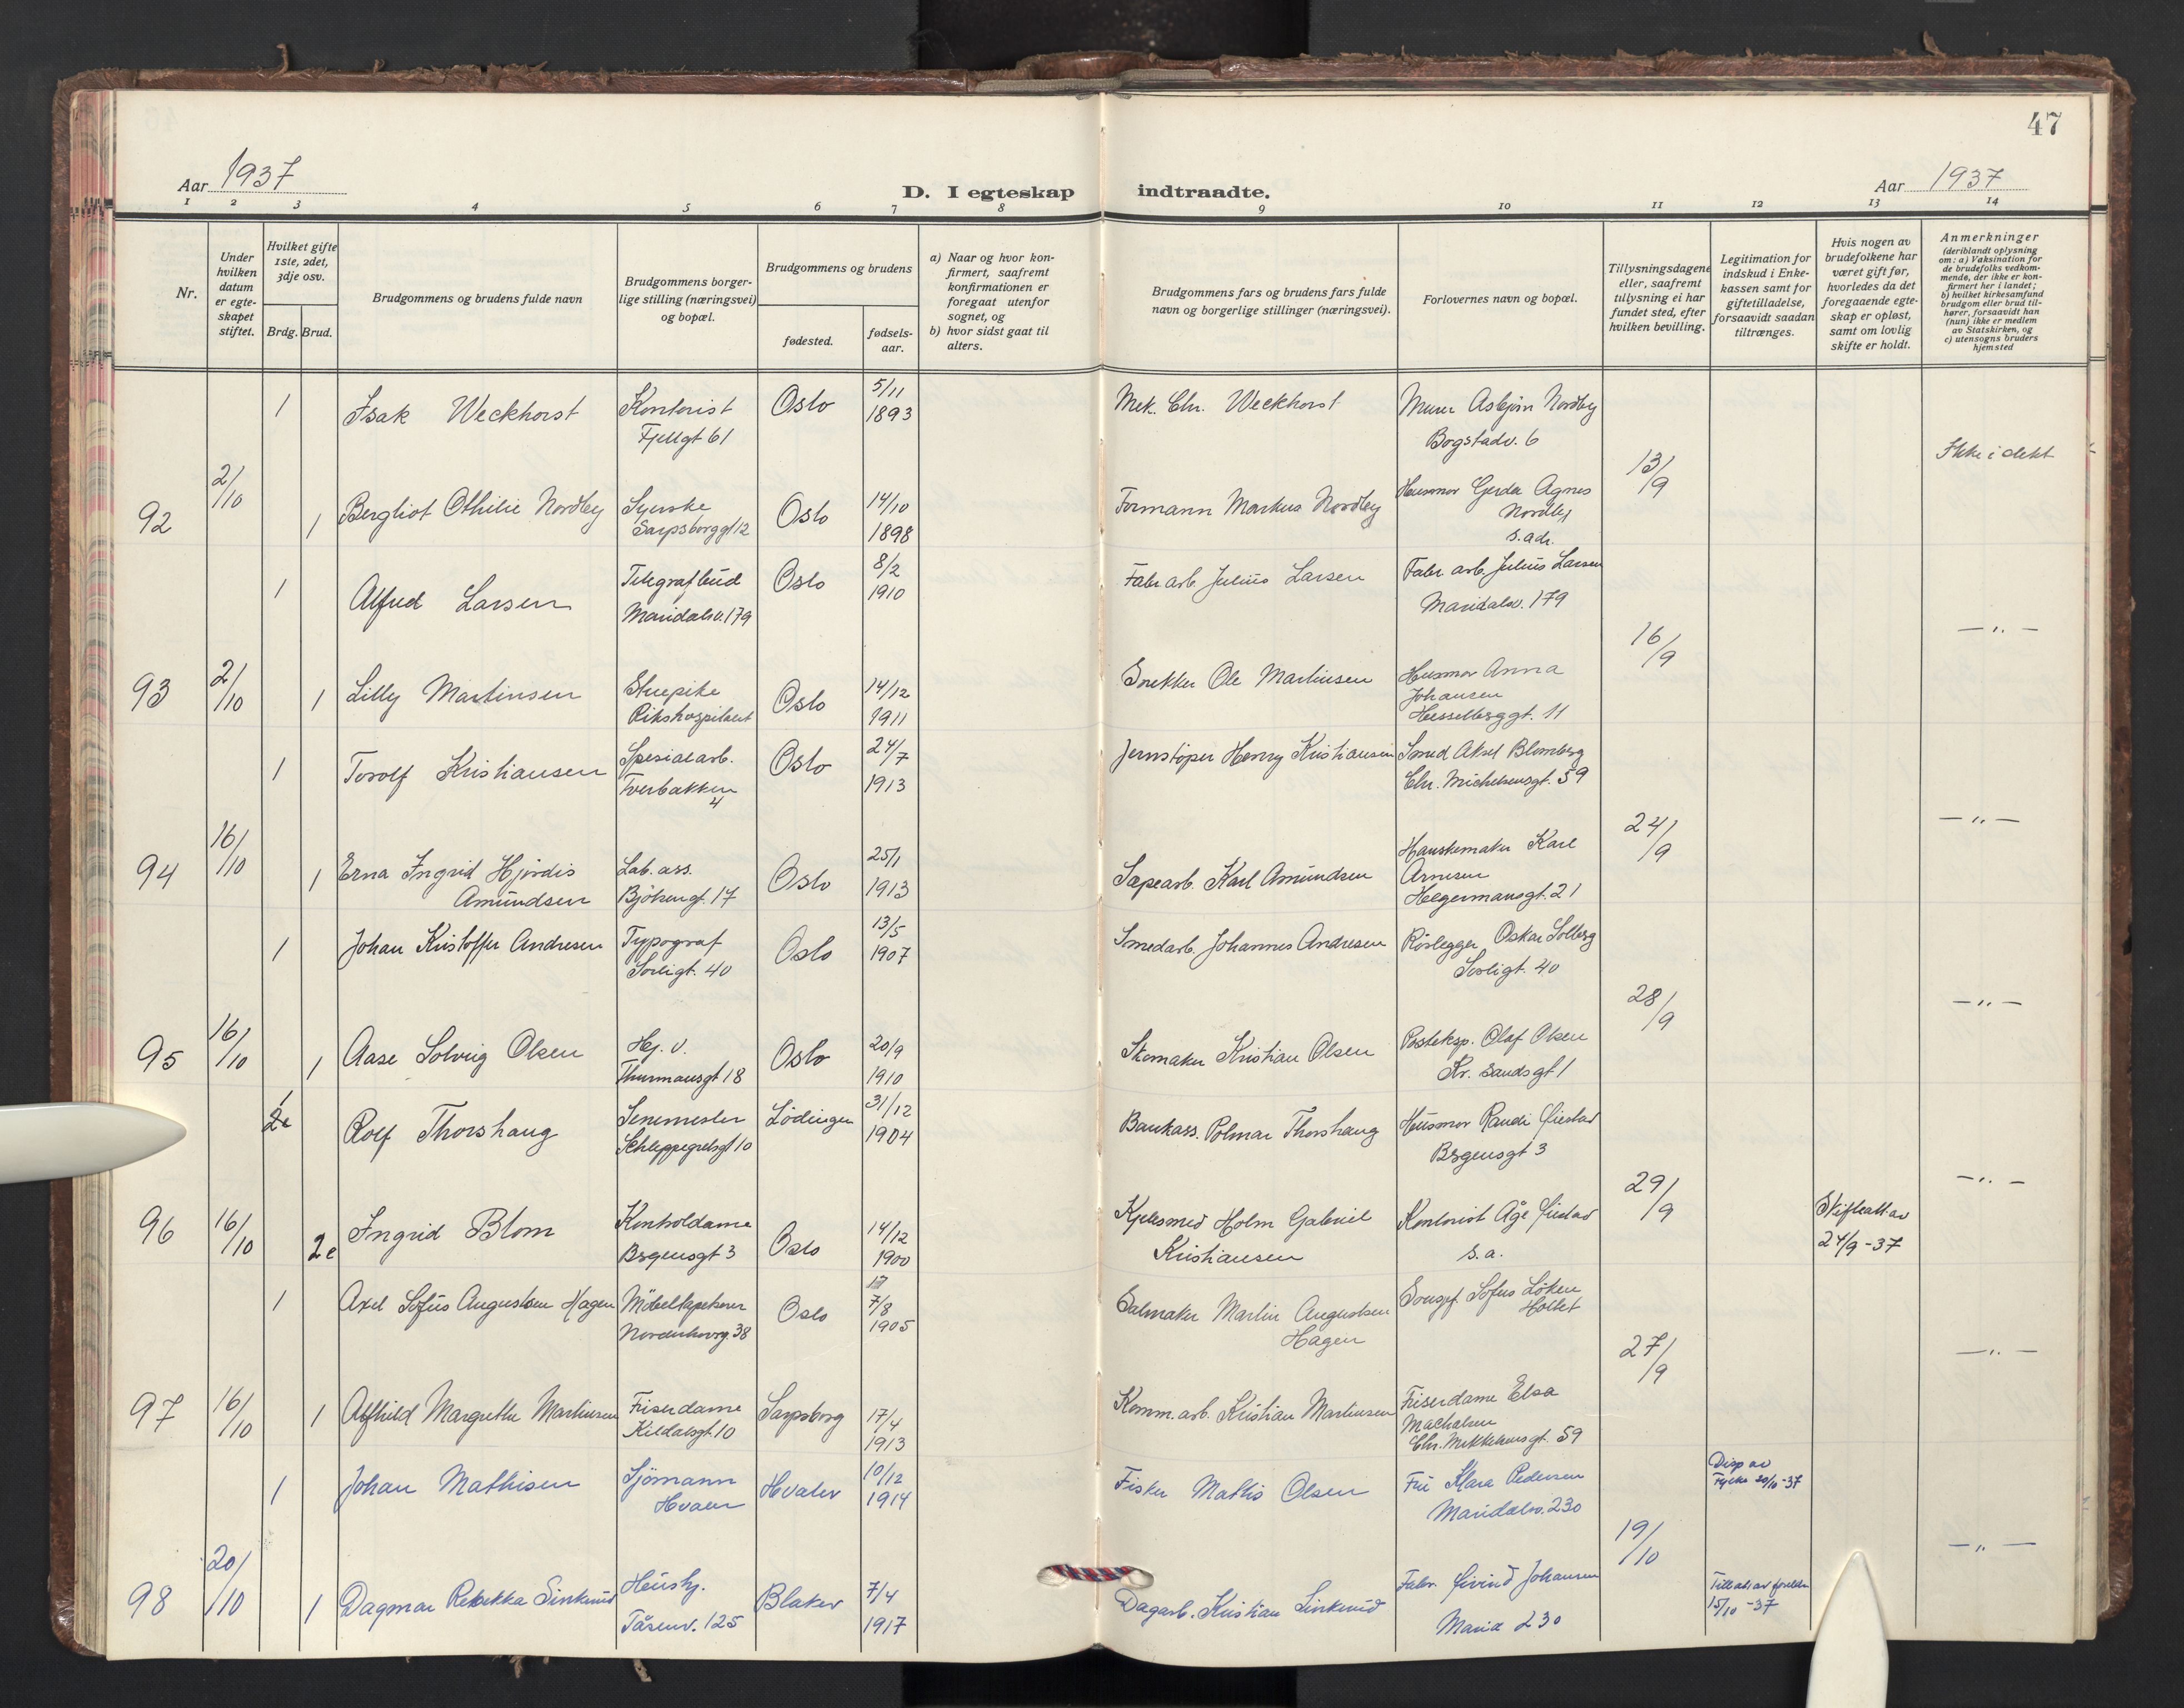 47
Aar 1937
D. I egteskap indtraadte.
Aar 1937
1 2 3 4 5 6 7 8 9 10 11 12 13 14
Nr.
Under hvilken datum er egte-skapet stiftet.
Hvilket gifte 1ste, 2det, 3dje osv.
Brdg. Brud.
Brudgommens og brudens fulde navn
Brudgommens borger-lige stilling (næringsvei) og bopæl.
Brudgommens og brudens
fødested.
fødsels-aar.
a) Naar og hvor kon-firmert, saafremt konfirmationen er foregaat utenfor sognet, og
b) hvor sidst gaat til alters.
Brudgommens fars og brudens fars fulde navn og borgerlige stillinger (næringsvei).
Forlovernes navn og bopæl.
Tillysningsdagene eller, saafremt tillysning ei har fundet sted, efter hvilken bevilling.
Legitimation for indskud i Enke-kassen samt for giftetilladelse, forsaavidt saadan tiltrænges.
Hvis nogen av brudefolkene har været gift før, hvorledes da det foregaaende egte-skap er opløst, samt om lovlig skifte er holdt.
Anmerkninger
(deriblandt oplysning om: a) Vaksination for de brudefolks vedkom-mende, der ikke er kon-firmert her i landet; b) hvilket kirkesamfund brudgom eller brud til-hører, forsaavidt han (hun) ikke er medlem av Statskirken, og c) utensogns bruders hjemsted
1 Isak Weckhorst Kontorist Fjellgt 61 Oslo 5/11 1893 Mek. Chr. Weckhorst Murer Asbjørn Nordby Bogstadv. 6
Ikke i slekt
92 2/10 1 Bergliot Othilie Nordby Syerske Sarpsborggt 12 Oslo 14/10 1898 Formann Markus Nordby Husmor Gerda Agnes Nordby s. adr. 13/9
1 Alfred Larsen Telegrafbud Maridalsv. 179 Oslo 8/2 1910 Fabr arb. Julius Larsen Fabr. arb. Julius Larsen Maridalsv. 179
— " —
93 2/10 1 Lilly Martinsen Stuepike Rikshospitalet Oslo 14/12 1911 Snekker Ole Martinsen Husmor Anna Johansen Hesselberggt. 11 16/9
1 Torolf Kristiansen Spesialarb. Tverbakken 4 Oslo 24/7 1913 Jernstøper Henry Kristiansen Smed Aksel Blomberg Chr. Michelsensgt. 59
— " —
94 16/10 1 Erna Ingrid Hjørdis Amundsen Lab. ass. Bjölsengt. 17 Oslo 25/1 1913 Sapearb. Karl Amundsen Hanskemaker Karl Arnesen Helgermansgt. 21 24/9
1 Johan Kristoffer Andresen Typograf Sorligt. 40 Oslo 13/5 1907 Smedarb. Johannes Andresen Rörlegger Oskar Solberg Sorligt. 40
— " —
95 16/10 1 Aase Solveig Olsen Hj. v. Thurmansgt 18 Oslo 20/9 1910 Skomaker Kristian Olsen Posteksp. Olaf Olsen Kr. sandsgt 1 28/9
2e Rolf Thorshaug Senemester Schleppegrelsgt 10 Lödingen 31/12 1904 Bankass. Polmar Thorshaug Husmor Randi Bergensgt 3
— " —
96 16/10 2e Ingrid Blom Kontoldame Bergensgt 3 Oslo 14/12 1900 Kjelesmed Holm Gabriel Kristiansen Kontorist Åge s. a. 29/9 Skifteatt av 24/9-37
1 Axel Sofus Augustsen Hagen Möbeltapetserer Norderhovg. 38 Oslo 17 7/8 1905 Salmaker Martin Augustsen Hagen Sofus Löken Holtet
— " —
97 16/10 1 Alfhild Margrethe Martinsen Friserdame Kildalsgt. 10 Sarpsborg 17/4 1913 Komm. arb. Kristian Martinsen Friserdame Elsa Chr. Mikkelsensgt. 59 27/9
1 Johan Mathisen Sjömann Hvaler Hvaler 10/12 1914 Fisker Mathis Olsen Fru Klara Pedersen Maridalsv. 230 Disp av Fylke 20/10-37
— " —
98 20/10 1 Dagmar Rebekka Sinkerud Hushj. Tåsenv. 125 Blaker 7/4 1917 Dagarb. Kristian Sinkerud Fabr. Öivind Johansen Marid 230 19/10 Tillat. av foreldre 15/10-37